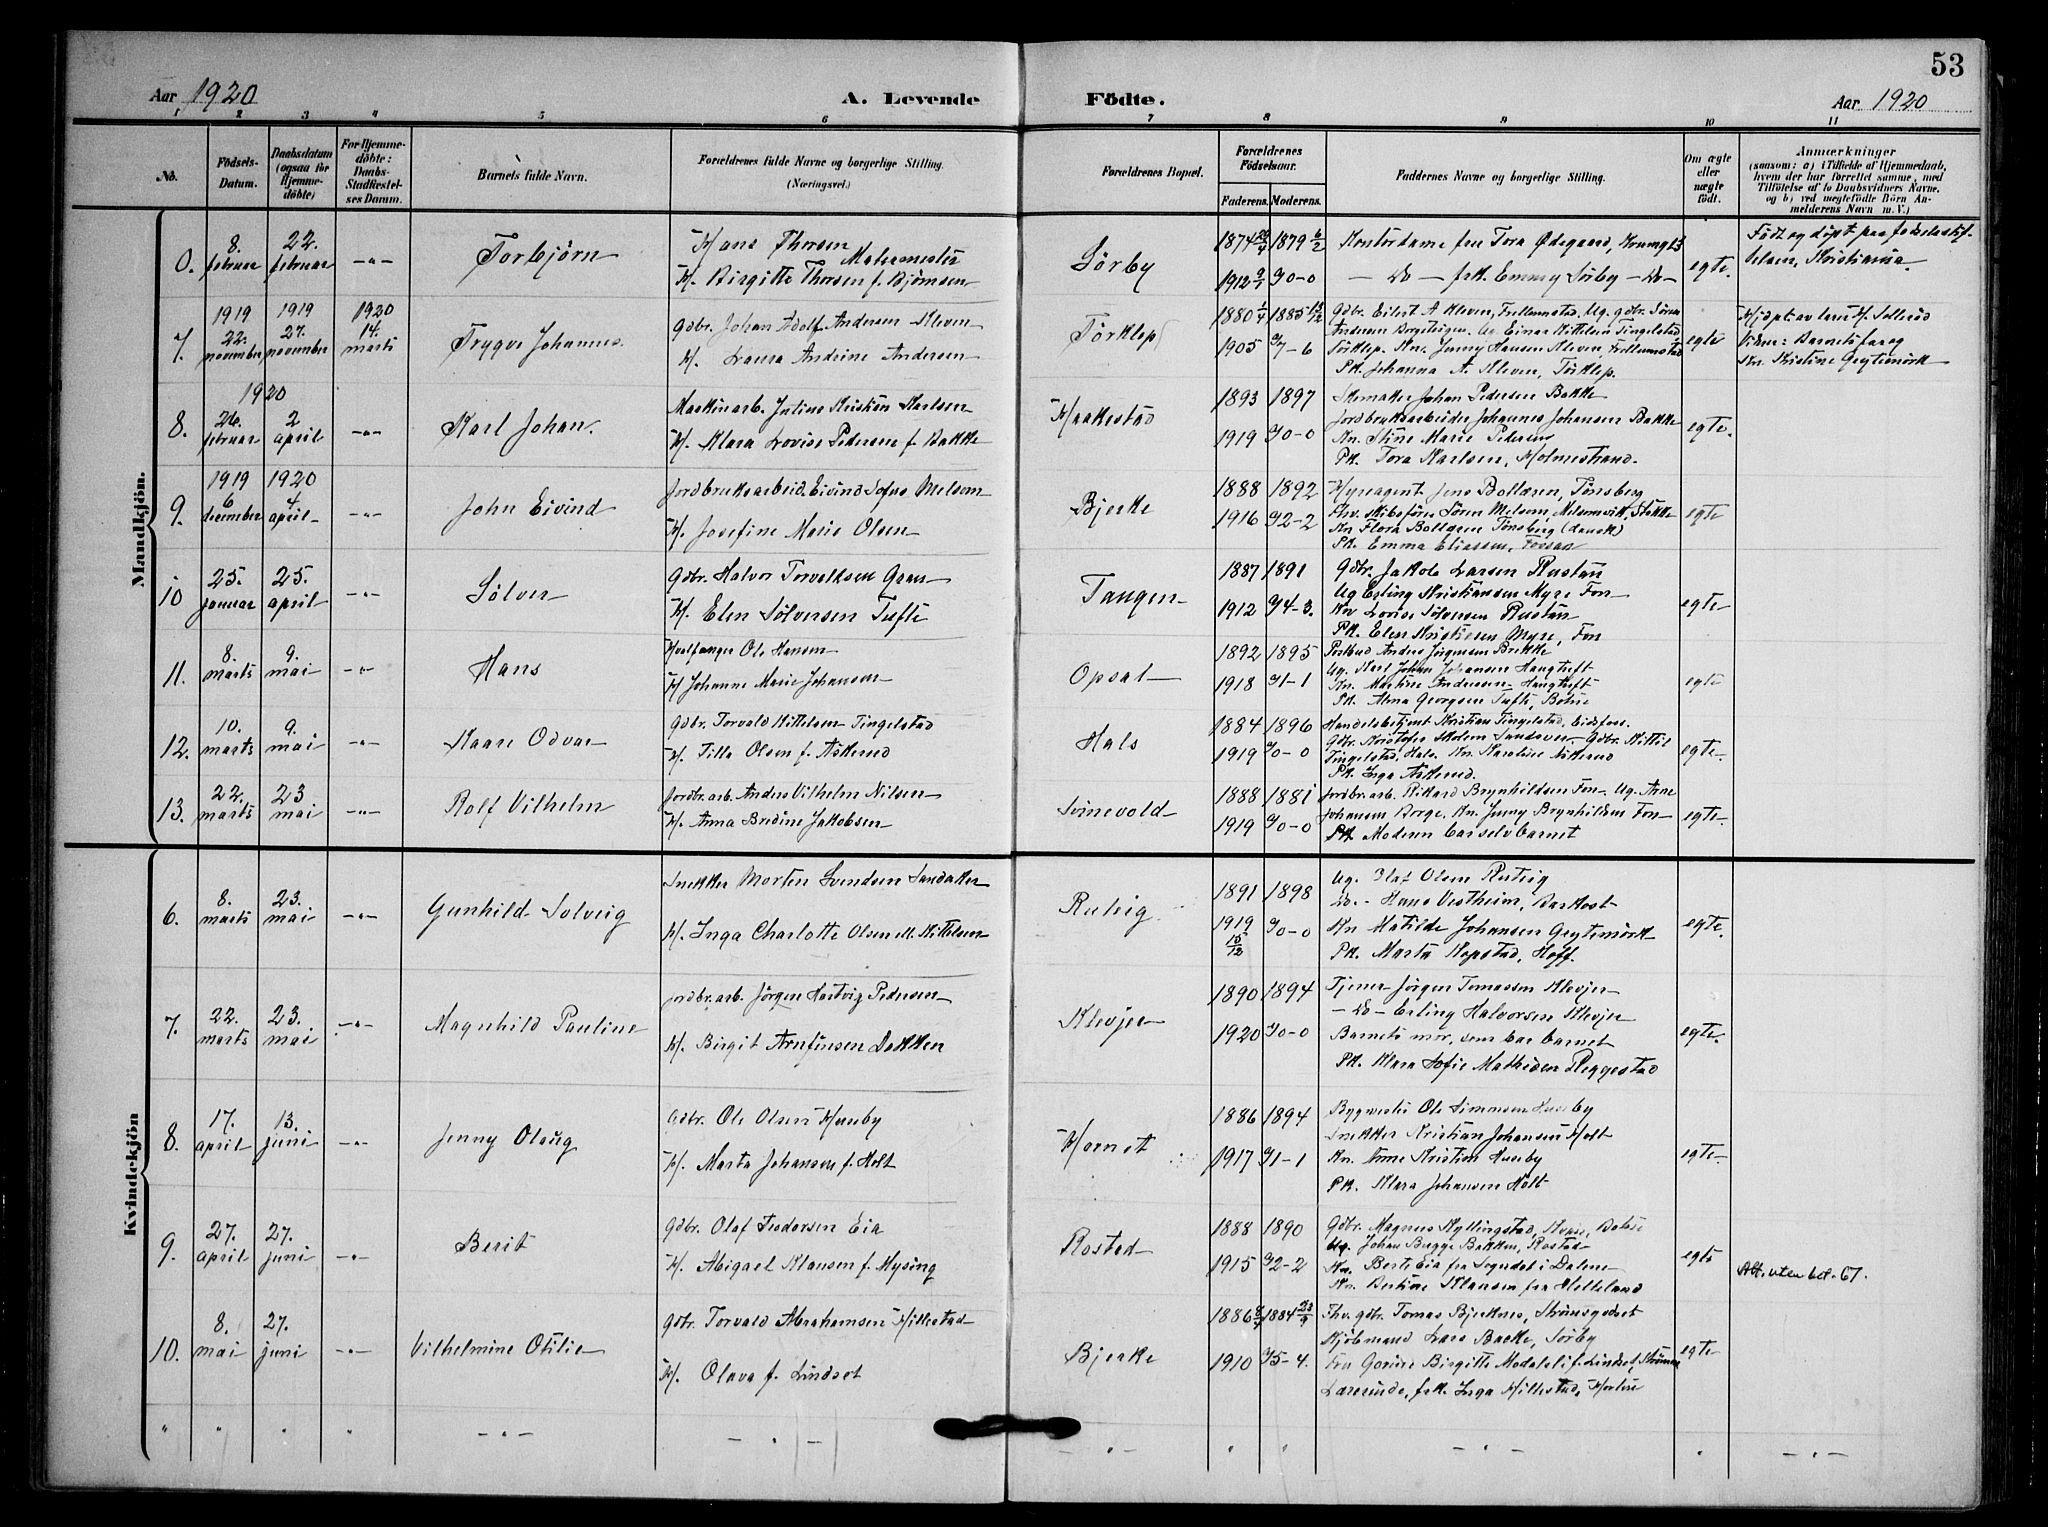 53
Aar 1920 A. Levende Födte. Aar 1920
1 2 3 4 5 6 7 8 9 10 11
No. Födsels-Datum. Daabsdatum (ogsaa for Hjemme-döbte) For Hjemme-döbte: Daabs-Stadfæstel-ses Datum. Barnets fulde Navn. Forældrenes fulde Navne og borgerlige Stilling. (Næringsvei.) Forældrenes Bopæl. Forældrenes Födselsaar. Faderens. Moderens. Faddernes Navne og borgerlige Stilling. Om ægte eller uægte födt. Anmærkninger (saasom: a) i Tilfælde af Hjemmedaab, hvem der har forrettet samme, med Tilföielse af to Daabsvidners Navne, og b) ved uegtefödte Börn An-melderens Navn m. V.)
Mandkjön.
0. 8. februar 22. februar -"- Torbjörn
Hans Thorsen Malermester
H. Birgitte Thorsen f. Bjömsen
Sörby 1874 1879 6/2
1912 0-0
Kontordame frk Tora Ødegaard,
- Do - frk. Emmy Sörby - Do -
egte.
Födt og döpt paa fødselsstif-
telsen, Kristiania.
7. 1919 22. november 1919 27. november 1920 14. marts Trygve Johannes
Gdbr. Johan Adolf Andersen Kleven
H. Laura Andrine Andersen
Törklep 1880 1/4 1885
1905 7-6
Gdbr. Eilert A Kleven, Fillemstad, Ug. gdbr. Sören
Andersen Ug Einar Kittilsen Tingelstad
Törklep. Kn. Jenny Hansen Kleven, Fillemstad
Pk. Johanna A. Kleven, Törklep.
egte
Hjdpt av lærer H. Sollerød
Vidner: Barnets far og
Kn. Kristine Grytemörk
8. 1920 26. februar 2 april -"- Karl Johan.
Maskinarb. Julius Kristian Karlsen
H. Klara Lovise Pedersen f. Bakke
Haakestad 1893 1897
1919 0-0
Skomaker Johan Pedersen Bakke
Jordbruksarbeider Johannes Johansen Bakke
Kn. Stine Marie Pedersen
Pk. Tora Karlsen, Holmestrand.
egte.
9. 1919 6 december 1920 4 april -"- John Eivind
Jordbruksarbeid. Eivind Sofus Melsom
H. Josefine Marie Olsen
Bjerke 1888 1892
1916 2-2
Hyreagent Jens Bollæren, Tønsberg
Fhv. Skibsförer Sören Melsom, Melsomvik, Stokke
Kn Flora Bollæren Tønsberg (dansk)
Pk. Emma Eliassen, Fossan
egte
10 25. januar 25. april -"- Sölver
Gdbr. Halvor Torvaldsen Gran
H. Elen Sölversen Tufte
Tangen 1887 1891
1912 4-3.
Gdbr. Jakob Larsen Rustan
Ug Erling Kristiansen Myre Fon
Kn Lovise Sølversen Rustan
Pk. Elen Kristiansen Myre, Fon
egte
11. 8. marts 9. mai -"- Hans
Hvalfanger Ole Hansen
H Johanne Marie Johansen
Opsal 1892 1895
1918 1-1
Postbud Anders Jörgensen Brekke
Ug. Karl Johan Johansen Haugtuft
Kn. Martine Andersen Haugtuft
Pk. Alma Georgsen Tufte, Botne
egte
12. 10. marts 9. mai -"- Kaare Odvar
Gdbr. Torvald Kittelsen Tingelstad
H. Tilla Olsen f. Askerud
Hals 1884 1896
1919 0-0
Handelsbetjent Kristian Tingelstad, Eidsfoss.
Gdbr. Kristofer Skolem Sandsver Gdbr. Kittil
Tingelstad, Hals. Kn. Karoline Askerud
Pk. Inga Askerud.
egte
13. 22. marts 23 mai -"- Rolf Vilhelm
Jordbr. arb. Anders Vilhelm Nilsen
H. Anna Bredine Jakobsen
Svinevold 1888 1881
1919 0-0
Jordbr. arb. Rikard Brynhildsen Fon Ug. Arne
Johansen Borge. Kn. Jenny Brynhildsen Fon
Pk. Moderen bar selv barnet
egte.
Kvindekjön
6. 8. marts 23. mai -"- Gunhild Solveig
Snekker Morten Svendsen Sandaker
H. Inga Charlotte Olsen ell. Kittelsen
Rutvig 1891 1898
1919 15/12 0-0
Ug. Olaf Olsen Rutvig
Do. - Hans Vestheim,
Kn Matilde Johansen Grytemörk
Pk. Marta Kopstad, Hoff.
egte.
7. 22. marts 23. mai -"- Magnhild Pauline
Jordbr. arb. Jörgen Hartvig Pedersen
H. Birgit Arnfinsen Bakken
Klevjer 1890 1894
1920 0-0
Tjener Jörgen Tomassen Klevjer
- Do - Erling Halvorsen Klevjer
Barnets mor, som bar barnet
Pk. Klara Sofie Mathisen Reggestad
egte.
8. 17. april 13. juni -"- Jenny Olaug
Gdbr. Ole Olsen Huseby
H. Marta Johansen f. Holt
Hornet 1886 1894
1917 1-1
Bygmester Ole Simonsen Huseby
Snekker Kristian Johansen Holt
Kn. Anne Kristine Huseby
Pk. Klara Johansen Holt
egte.
9. 27. april 27. juni -"- Berit
Gdbr. Olaf Teodorsen Eia
H. Abigael Klausen f. Mysing
Rostad 1888 1890
1915 2-2
Gdbr. Magnus Kyllingstad, Botne
Ug. Johan Bugge Bakken, Rostad
Kn. Berte Eia fra Sogndal i Dalene
Kn. Bertine Klausen fra Helleland
egte
Att. uten bet. 67.
10. 8. mai 27. juni -"- Vilhelmine Otilie
Gdbr. Torvald Abrahamsen Hillestad
H. Olava f. Lindset
Bjerke 1886 1884
1910 5-4.
Fhv. gdbr. Tomas Bjerknes, Strömsgodset
Kjöbmand Lars Bakke, Sörby
Fru Gurine Birgitte Modalsli f. Lindset,
Lærerinde, frk. Inga Hillestad, Horten
egte
" " " " -"- -"- -"- " " -"- " -"-